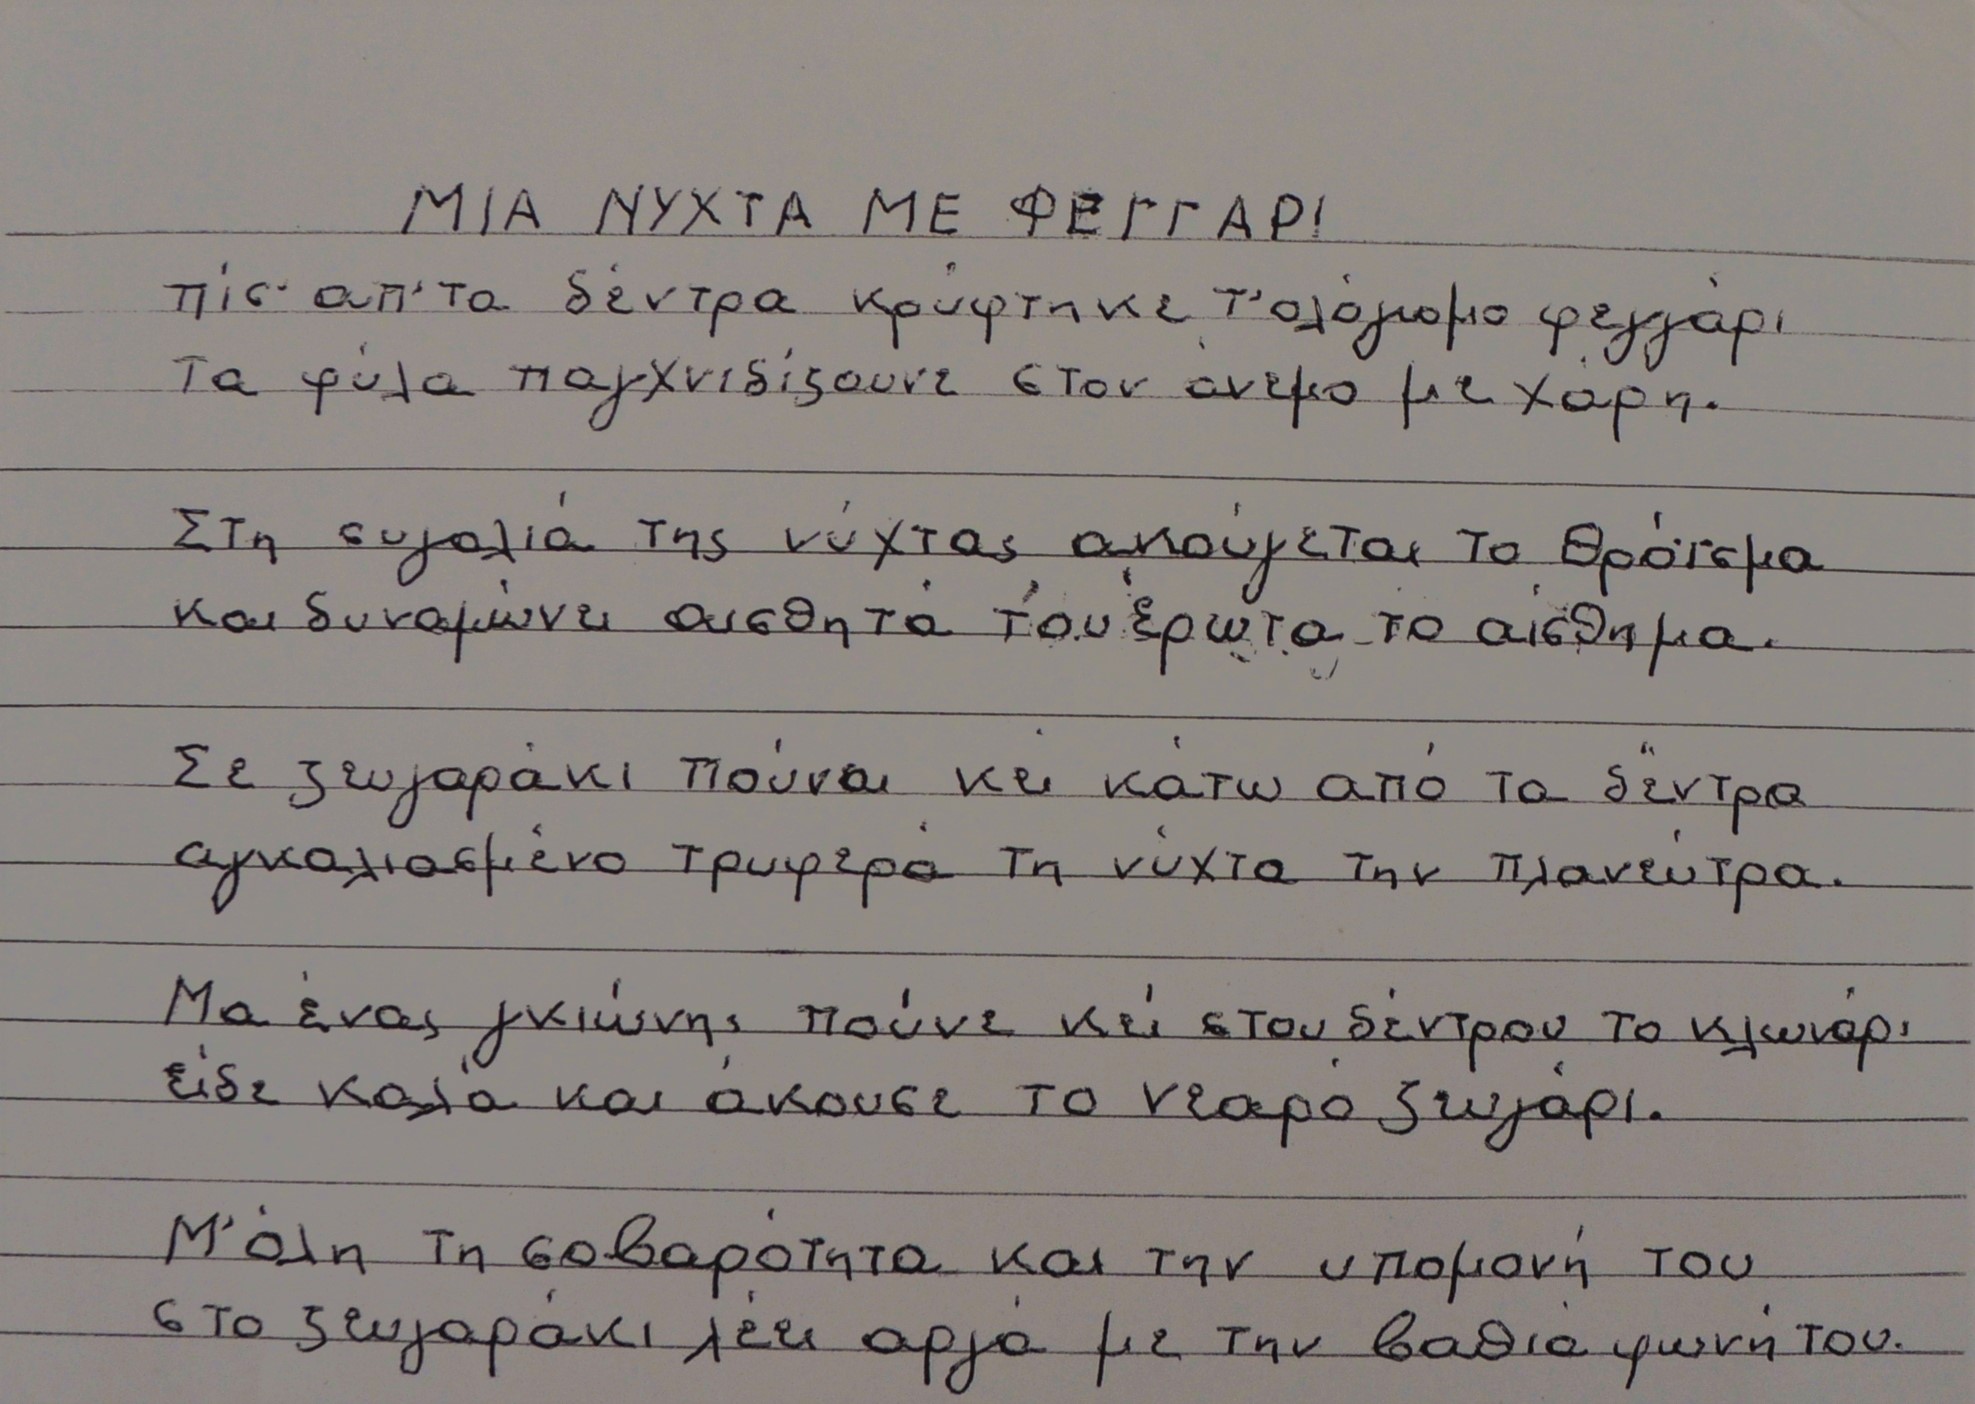 ΜΙΑ ΝΥΧΤΑ ΜΕ ΦΕΓΓΑΡΙ
πίσ' απ' τα δέντρα κρύφτηκε τ' ολόγιομο φεγγάρι
Τα φύλα παιγχνιδίζουνε στον άνεμο με χάρη.
Στη συγαλιά της νύχτας ακούγεται το θρόϊσμα
και δυναμώνει αισθητά του έρωτα το αίσθημα.
Σε ζευγαράκι πούναι κεί κάτω από τα δέντρα
αγκαλιασμένο τρυφερά τη νύχτα την πλανεύτρα.
Μα ένας γκιώνης πούνε κεί στου δέντρου το κλωνάρι
είδε καλά και άκουσε το νεαρό ζευγάρι.
Μ' όλη τη σοβαρότητα και την υπομονή του
στο ζευγαράκι λέει αργά με την βαθιά φωνή του.